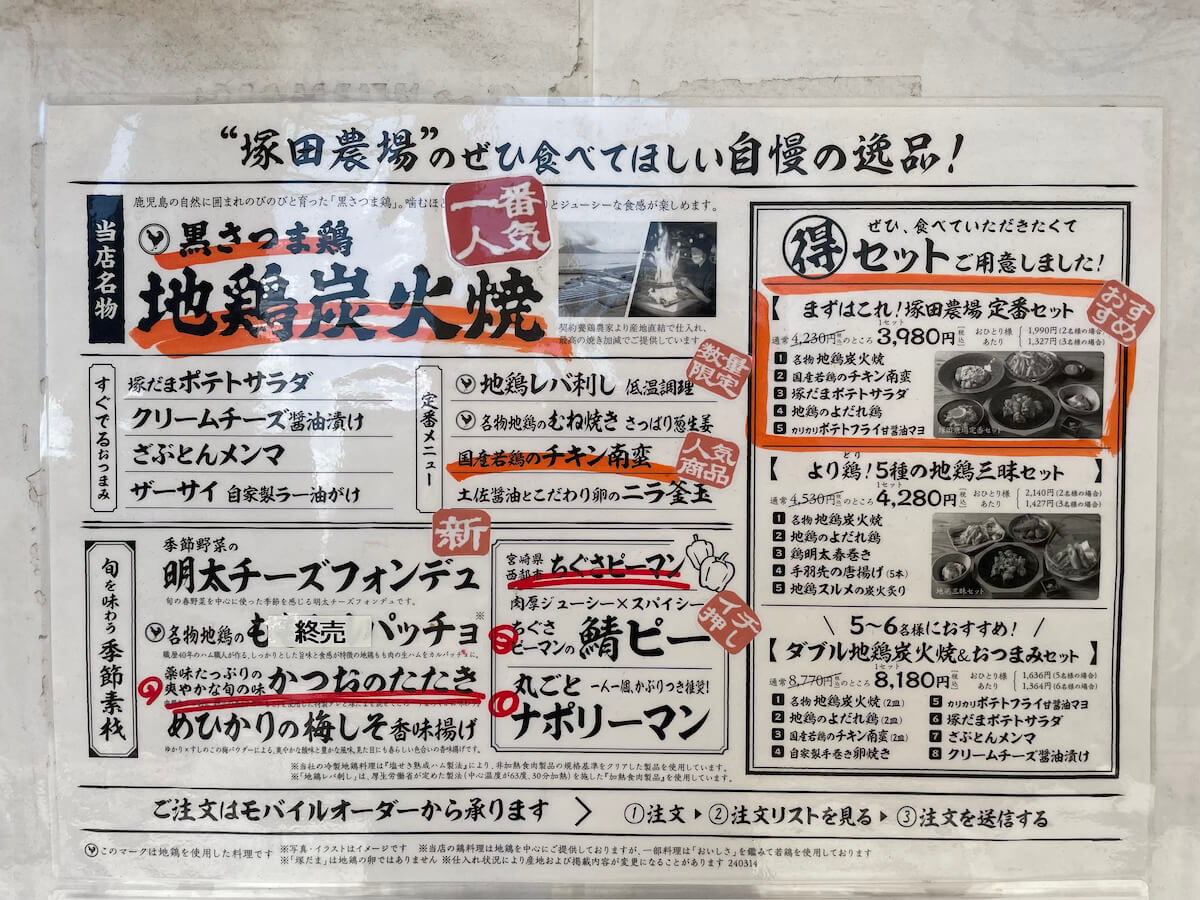 “塚田農場”のぜひ食べてほしい自慢の逸品！
当店名物
鹿児島の自然に囲まれのびのびと育った「黒さつま鶏」。噛むほ
とジューシーな食感が楽しめます。
一番人気
黒さつま鶏
地鶏炭火焼
契約養鶏農家より産地直結で仕入れ、
最高の焼き加減でご提供しています
すぐでるおつまみ
塚だまポテトサラダ
クリームチーズ醤油漬け
ざぶとんメンマ
ザーサイ 自家製ラー油がけ
定番メニュー
数量限定
地鶏レバ刺し 低温調理
名物地鶏のむね焼き さっぱり葱生姜
国産若鶏のチキン南蛮
人気商品
土佐醤油とこだわり卵のニラ釜玉
新
旬を味わう季節素材
季節野菜の
明太チーズフォンデュ
旬の春野菜を中心に使った季節を感じる明太チーズフォンデュです。
名物地鶏のも 終売 パッチョ※
職歴40年のハム職人が作る、しっかりとした旨味と食感が特徴の地鶏もも肉の生ハムをカルパッチョに。
薬味たっぷりの
爽やかな旬の味 かつおのたたき
めひかりの梅しそ香味揚げ
ゆかり×すしのこの梅パウダーによる、爽やかな酸味と豊かな風味。見た目にも春らしい色合いの香味揚げです。
宮崎県
西都市 ちぐさピーマン
肉厚ジューシー×スパイシー
イチ押し
ちぐさ
ピーマンの 鯖ピー
丸ごと 一人一個、かぶりつき推奨！
ナポリーマン
※当社の冷製地鶏料理は『塩せき熟成ハム製法』により、非加熱食肉製品の規格基準をクリアした製品を使用しています。
※「地鶏レバ刺し」は、厚生労働省が定めた製法（中心温度が63度、30分加熱）を施した『加熱食肉製品』を使用しています。
得 ぜひ、食べていただきたくて
セットご用意しました！
【まずはこれ！塚田農場 定番セット】
おすすめ
通常4,230円（税込）のところ 1セット 3,980円（税込） おひとり様あたり 1,990円（2名様の場合） 1,327円（3名様の場合）
1 名物地鶏炭火焼
2 国産若鶏のチキン南蛮
3 塚だまポテトサラダ
4 地鶏のよだれ鶏
5 カリカリポテトフライ甘醤油マヨ
塚田農場定番セット
【より鶏！5種の地鶏三昧セット】
とり
通常4,530円（税込）のところ 1セット 4,280円（税込） おひとり様あたり 2,140円（2名様の場合） 1,427円（3名様の場合）
1 名物地鶏炭火焼
2 地鶏のよだれ鶏
3 鶏明太春巻き
4 手羽先の唐揚げ（5本）
5 地鶏スルメの炭火炙り
地鶏三昧セット
\ 5~6名様におすすめ！ /
【ダブル地鶏炭火焼&おつまみセット】
通常8,770円（税込）のところ 1セット 8,180円（税込） おひとり様あたり 1,636円（5名様の場合） 1,364円（6名様の場合）
1 名物地鶏炭火焼（2皿）
2 地鶏のよだれ鶏（2皿）
3 国産若鶏のチキン南蛮（2皿）
4 自家製手巻き卵焼き
5 カリカリポテトフライ甘醤油マヨ
6 塚だまポテトサラダ
7 ざぶとんメンマ
8 クリームチーズ醤油漬け
ご注文はモバイルオーダーから承ります ＞ ①注文▶②注文リストを見る▶③注文を送信する
このマークは地鶏を使用した料理です ※写真・イラストはイメージです ※当店の鶏料理は地鶏を中心にご提供しておりますが、一部料理は「おいしさ」を鑑みて若鶏を使用しております
※「塚だま」は地鶏の卵ではありません ※仕入れ状況により産地および掲載内容が変更になることがあります 240314